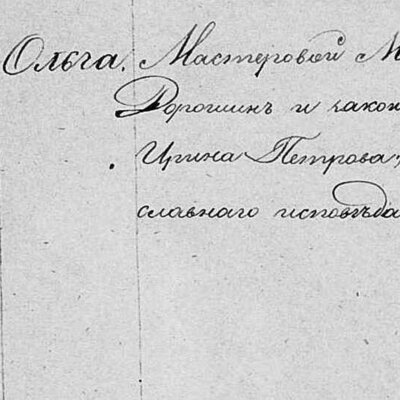 Ольга. Мастеровой М
Дорошинъ и закон
Ирина Петрова,
славнаго исповѣда